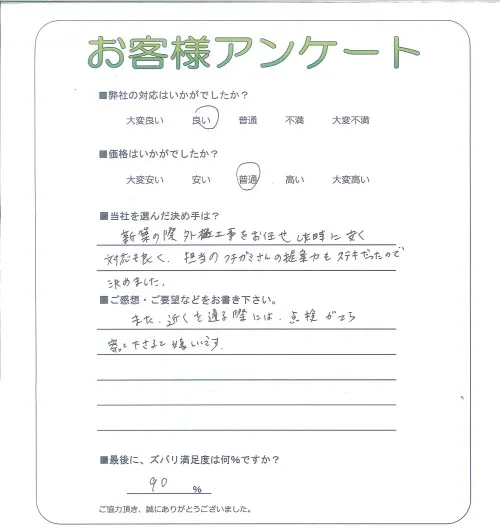 お客様アンケート
■弊社の対応はいかがでしたか？
大変良い 良い 普通 不満 大変不満
■価格はいかがでしたか？
大変安い 安い 普通 高い 大変高い
■当社を選んだ決め手は？
新築の際外構工事をお任せした時に安く
対応も良く、担当のフチガミさんの提案力もステキだったので
決めました。
■ご感想・ご要望などをお書き下さい。
また、近くを通る際には、点検がてら
寄って下さると嬉しいです。
■最後に、ズバリ満足度は何％ですか？
90 ％
ご協力頂き、誠にありがとうございました。